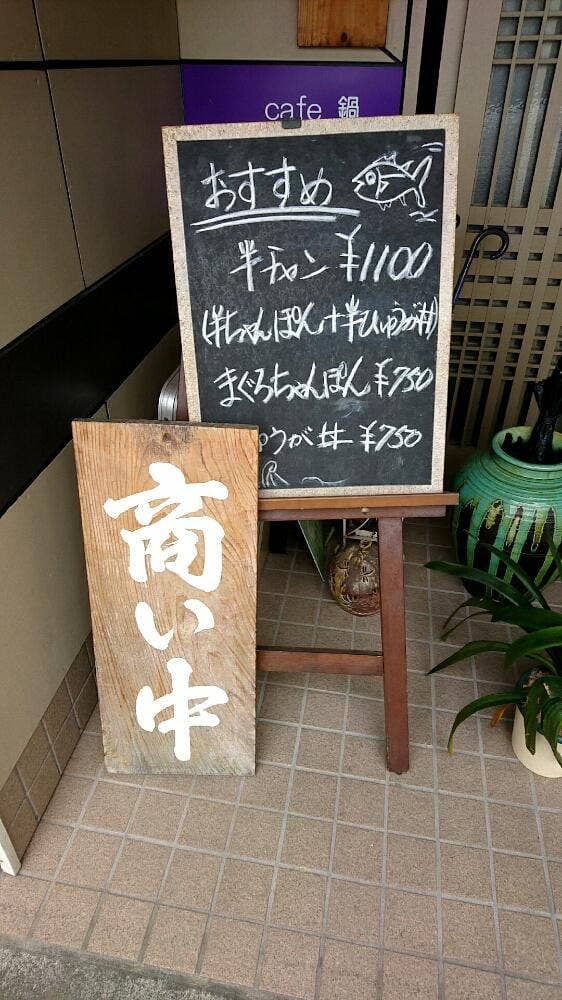 cafe 鍋
おすすめ
半チャン ¥1100
(半ちゃんぽん+半ひゅうが丼)
まぐろちゃんぽん ¥750
ゅうが丼 ¥750
商い中